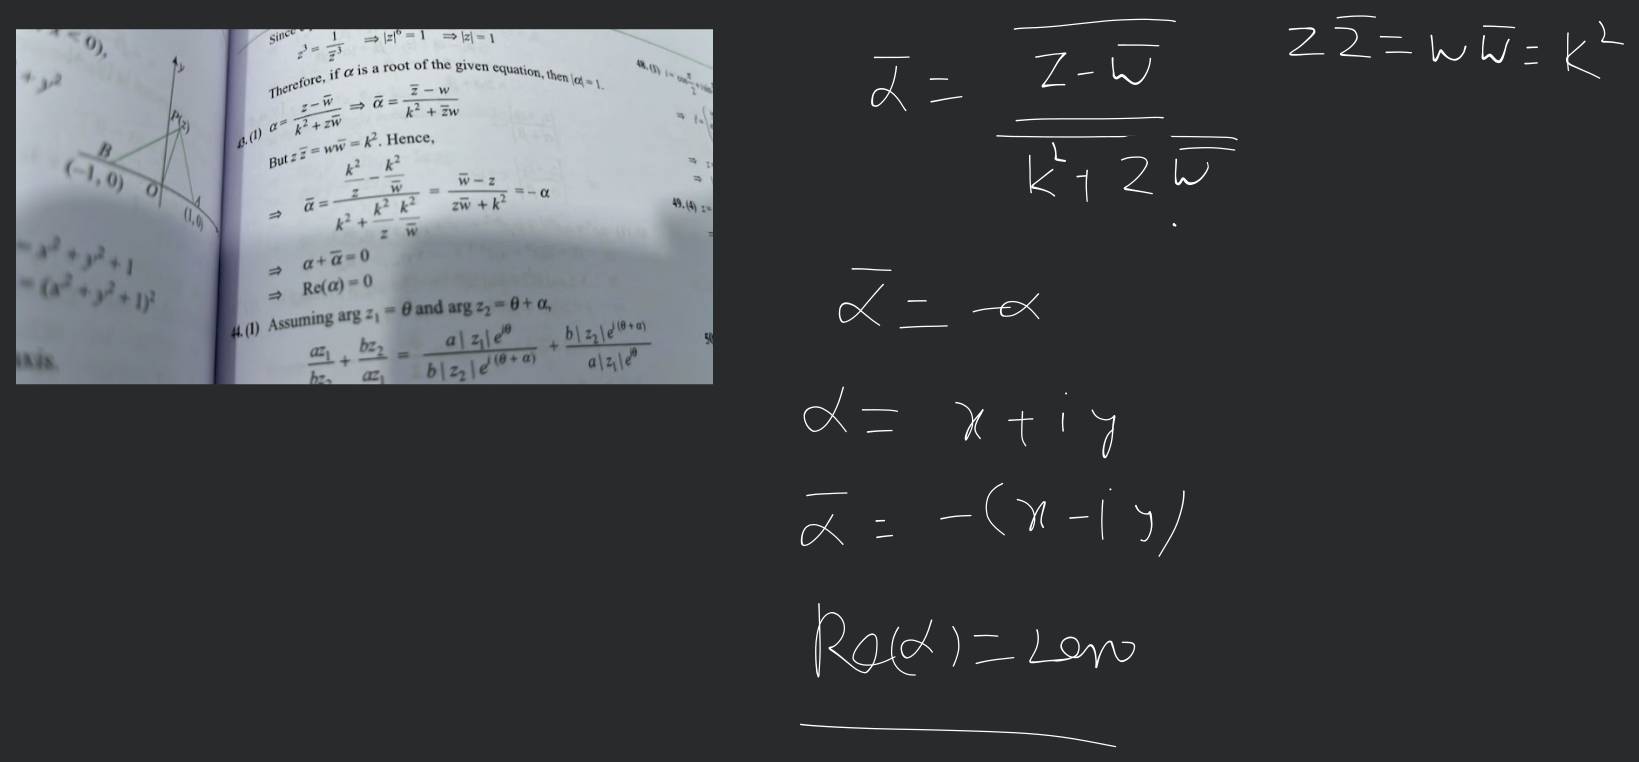 < 0),
+ y²
y
P(z)
B
(–1, 0)
O
A
(1, 0)
= x² + y² + 1
= (x² + y² + 1)²
axis.
Since
z³ = 1/z̄³ ⇒ |z|⁶ = 1 ⇒ |z| = 1
Therefore, if α is a root of the given equation, then |α| = 1.
43. (1) α = (z – w̄)/(k² + zw̄) ⇒ ᾱ = (z̄ – w)/(k² + z̄w)
But z z̄ = ww̄ = k². Hence,
⇒ ᾱ = (k²/z – k²/w̄)/(k² + k²/z k²/w̄) = (w̄ – z)/(zw̄ + k²) = – α
⇒ α + ᾱ = 0
⇒ Re(α) = 0
44. (1) Assuming arg z₁ = θ and arg z₂ = θ + α,
az₁/bz₂ + bz₂/az₁ = a|z₁|e^{iθ}/b|z₂|e^{i(θ + α)} + b|z₂|e^{i(θ + α)}/a|z₁|e^{iθ}
48. (3)
49. (4) z =
50
z z̄ = w w̄ = k²
ᾱ = \overline{z – w̄}/\overline{k² + z w̄}
ᾱ = –α
α = x + i y
ᾱ = –(x – i y)
Re(α) = zero